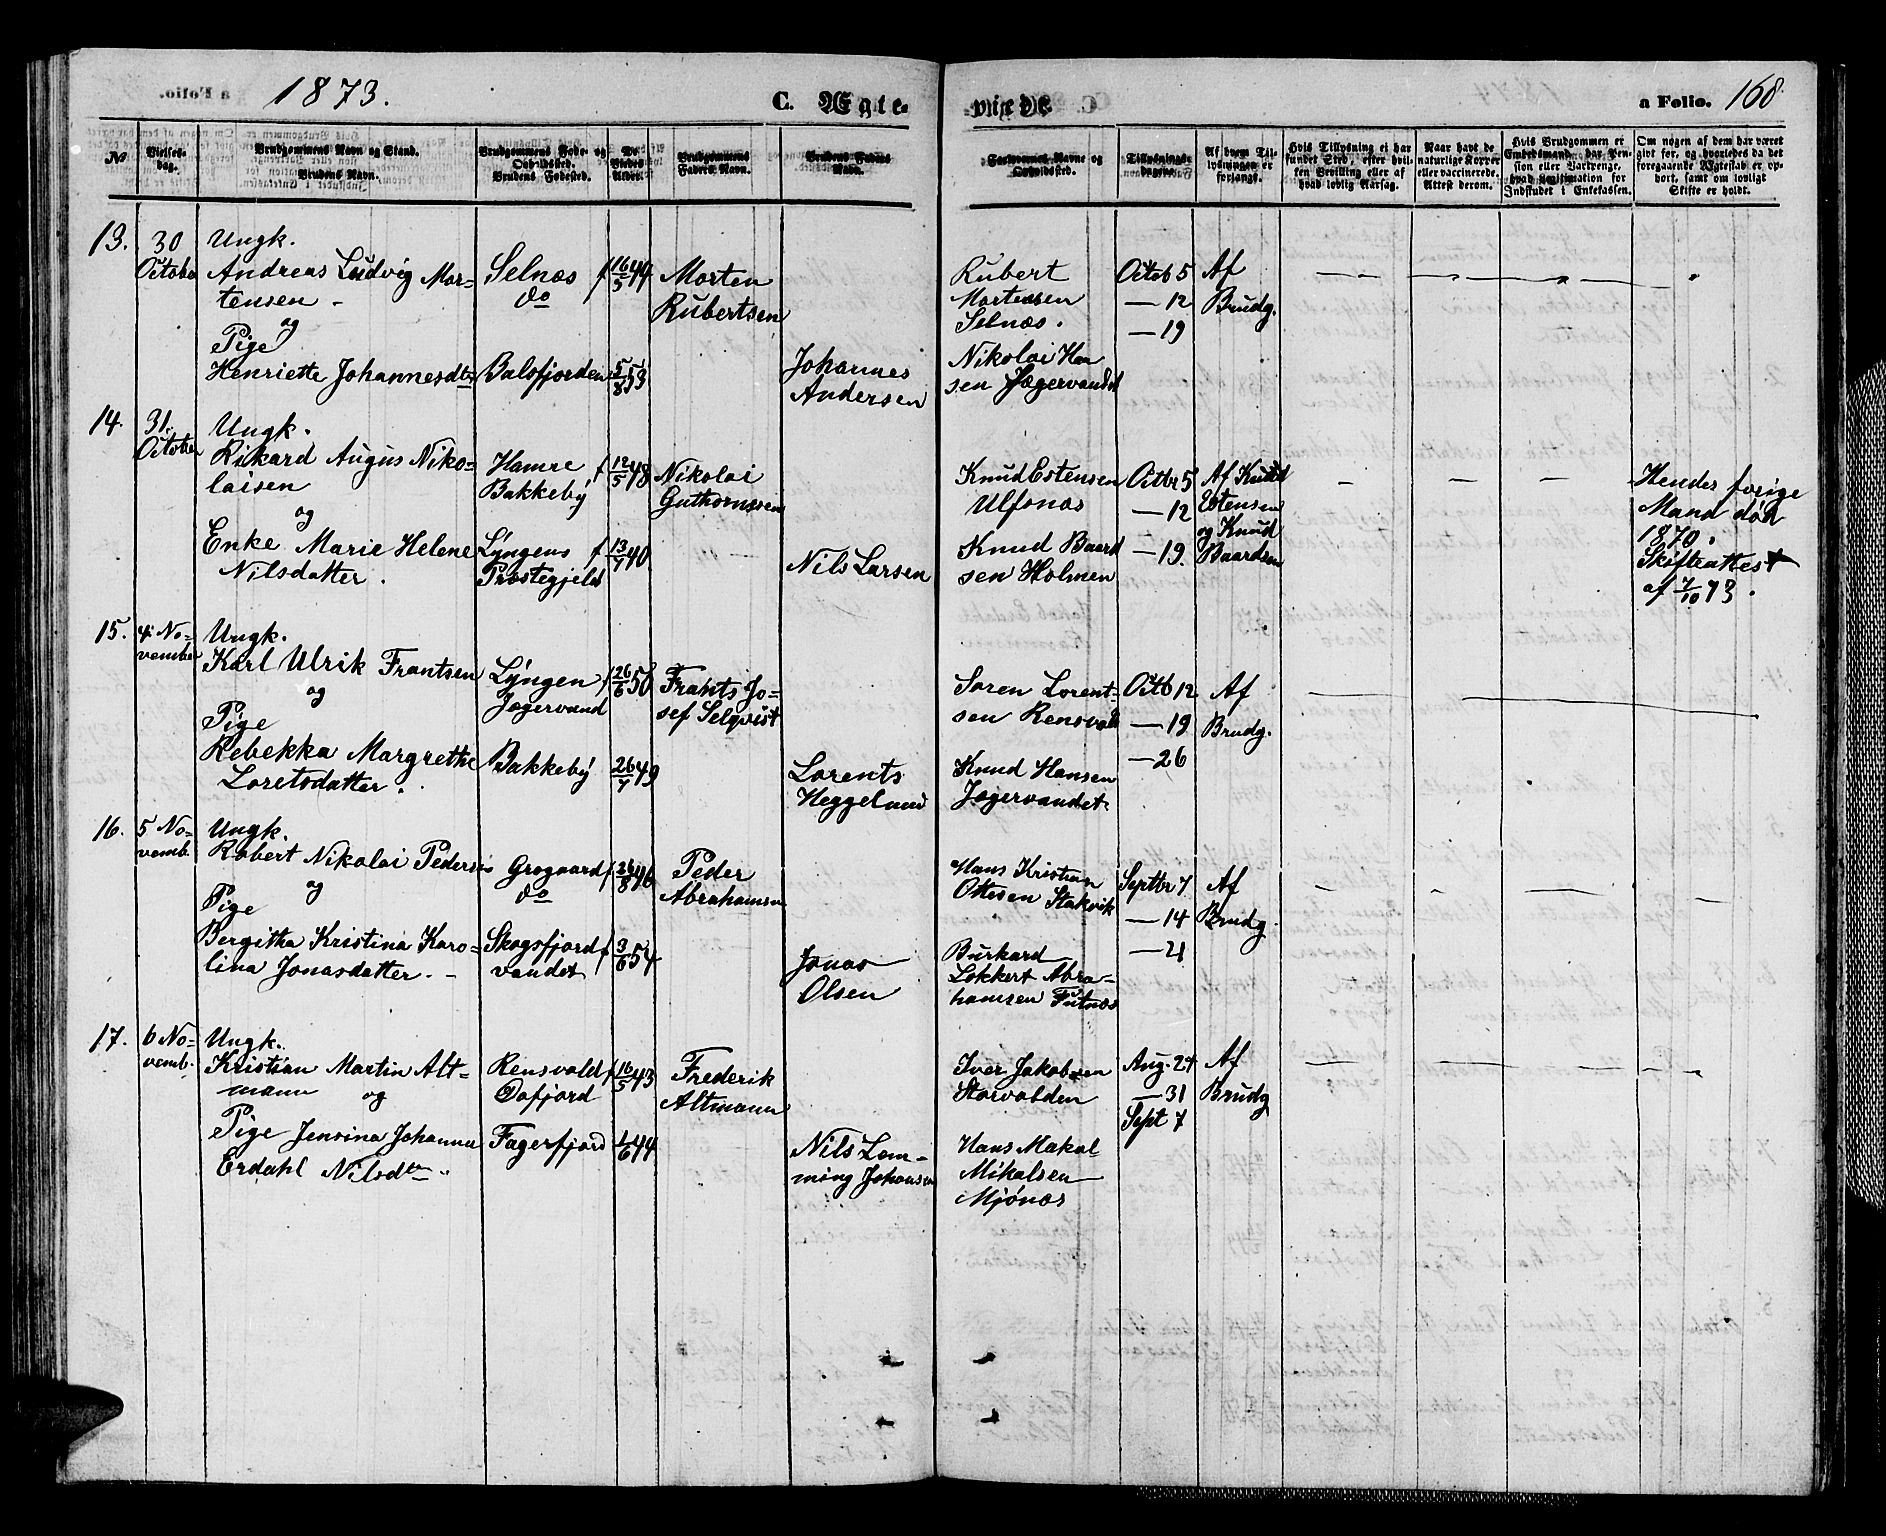 a Folio.
1873.
C. Ægte-
viede.
a Folio. 168
No
Vielses-
dag.
Brudgommens Navn og Stand.
Brudens Navn.
Brudgommens Føde- og
Opholdssted.
Brudens Fødested.
De
Viedes
Alder.
Brudgommens
Faders Navn.
Brudens Faders
Navn.
Forlovernes Navne og
Opholdssted.
Tillysnings-
dagene.
Af hvem Til-
lysningen er
forlangt.
Hvis Tillysning ei har
fundet Sted, efter hvil-
ken Bevilling eller af
hvad lovlig Aarsag.
Naar havt de
naturlige Kopper
eller vaccinerede.
Attest derom.
Hvis Brudgommen er
Embedsmand, har Pen-
sion eller Vartpenge,
hvad Legitimation for
Indskudet i Enkekassen.
Om nogen af dem har været
gift før, og hvorledes da det
foregaaende Ægteskab er op-
hørt, samt om lovligt
Skifte er holdt.
13.
30
October
Ungk.
Andreas Ludvig Mor-
tensen -
og
Pige
Henriette Johannesdtr
Selnæs
do
Balsfjorden
f 16/5 49
5/8 53
Morten
Rubertsen
Johannes
Andersen
Rubert
Mortensen
Selnæs.
Nikolai Han
sen Jægervandet
Octob 5
— 12
— 19
Af
Brudg.
14.
31.
October
Ungk.
Rikard Augus Niko-
laisen
og
Enke Marie Helene
Nilsdatter.
Hamre
Bakkeby
Lyngens
Præstegjeld
f 12/5 48
f 13/7 40
Nikolai
Guthormsen
Nils Larsen
Knud Estensen
Ulfsnæs
Knud Baard
sen Holmen
Octbr 5
— 12
— 19.
Af Knud
Estensen
og Knud
Baardsen
Hendes forige
Mand død
1870.
Skifteattest
af 7/10 73.
15.
4 No-
vember
Ungk.
Karl Ulrik Frantsen
og
Pige
Rebekka Margrethe
Loretsdatter.
Lyngen
Jægervand
Bakkeby
f 26/6 50
26/7 49
Frants Jo-
sef Selqvist
Lorents
Heggelund
Søren Lorent-
sen Rensvold
Knud Hansen
Jægervandet
Octb 12
— 19
— 26
Af
Brudg.
16.
5 No-
vemb.
Ungk.
Robert Nikolai Pedersen
og
Pige
Bergitha Kristina Karo-
lina Jonasdatter. -
Grøgaard
do
Skogsfjord
vandet
f 26/8 46
f 3/6 54
Peder
Abrahamsen
Jonas
Olsen
Hans Kristian
Ottesen Stakvik
Burkard
Lokkert Abra-
hamsen Futnæs
Septbr 7
— 14
— 21
Af
Brudg.
17.
6 No-
vemb.
Ungk.
Kristian Martin Alt-
mann og
Pige Jensina Johanna
Erdahl Nilsdtr.
Rensvold
Oofjord
Fagerfjord
f 16/5 43
1/6 44
Frederik
Altmann
Nils Lem-
ming Johansen
Iver Jakobsen
Storvolden
Hans Makal
Mikalsen
Mjønæs
Aug. 24
— 31
Sept 7
Af
Brudg